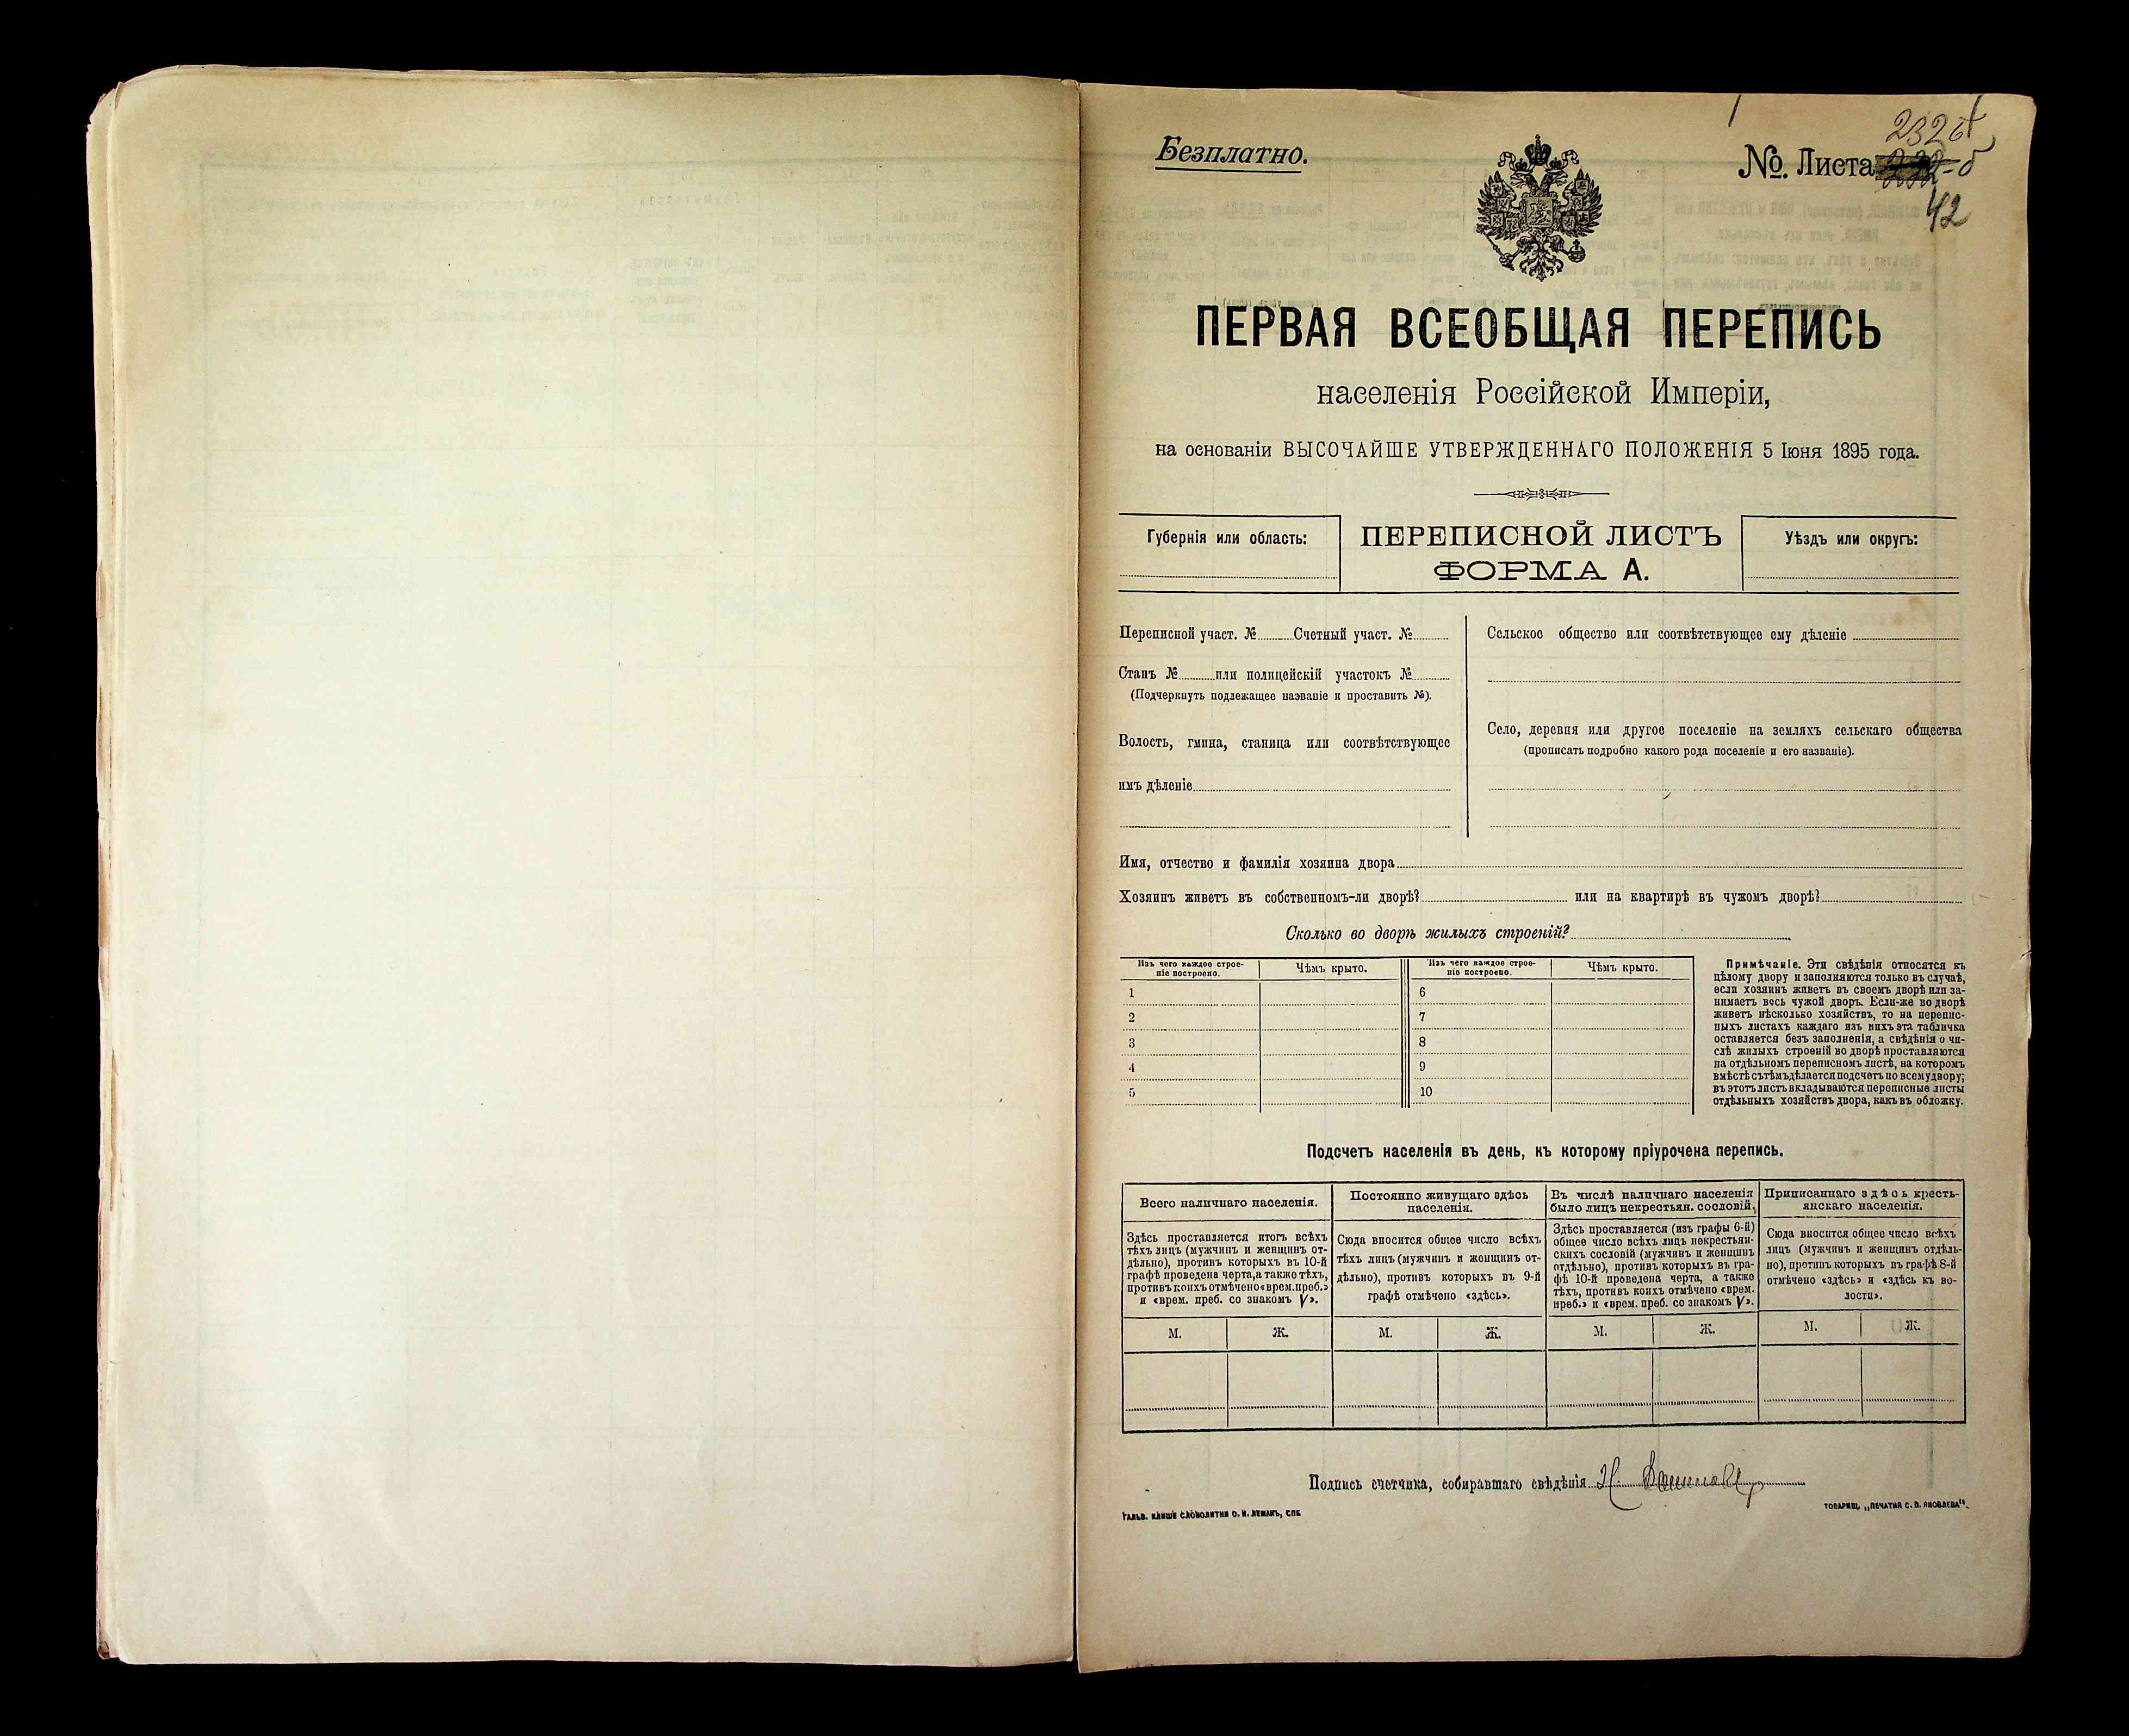 Безплатно.
№. Листа
42
ПЕРВАЯ ВСЕОБЩАЯ ПЕРЕПИСЬ
населенія Россійской Имперіи,
на основаніи ВЫСОЧАЙШЕ УТВЕРЖДЕННАГО ПОЛОЖЕНІЯ 5 Іюня 1895 года.
Губернія или область:
ПЕРЕПИСНОЙ ЛИСТЪ
ФОРМА А.
Уѣздъ или округъ:
Переписной участ. № Счетный участ. №
Станъ № или полицейскій участокъ №
(Подчеркнуть подлежащее названіе и проставить №).
Волость, гмина, станица или соотвѣтствующее
имъ дѣленіе
Сельское общество или соотвѣтствующее ему дѣленіе
Село, деревня или другое поселеніе на земляхъ сельскаго общества
(прописать подробно какого рода поселеніе и его названіе).
Имя, отчество и фамилія хозяина двора
Хозяинъ живетъ въ собственномъ-ли дворѣ? или на квартирѣ въ чужомъ дворѣ?
Сколько во дворѣ жилыхъ строеній?
Изъ чего каждое строе-
ніе построено.
Чѣмъ крыто.
Изъ чего каждое строе-
ніе построено.
Чѣмъ крыто.
1
2
3
4
5
6
7
8
9
10
Примѣчаніе. Эти свѣдѣнія относятся къ
цѣлому двору и заполняются только въ случаѣ,
если хозяинъ живетъ въ своемъ дворѣ или за-
нимаетъ весь чужой дворъ. Если-же во дворѣ
живетъ нѣсколько хозяйствъ, то на перепис-
ныхъ листахъ каждаго изъ нихъ эта табличка
оставляется безъ заполненія, а свѣдѣнія о чи-
слѣ жилыхъ строеній во дворѣ проставляются
на отдѣльномъ переписномъ листѣ, на которомъ
вмѣстѣ съ тѣмъ дѣлается подсчетъ по всему двору;
въ этотъ листъ вкладываются переписные листы
отдѣльныхъ хозяйствъ двора, какъ въ обложку.
Подсчетъ населенія въ день, къ которому пріурочена перепись.
Всего наличнаго населенія.
Здѣсь проставляется итогъ всѣхъ
тѣхъ лицъ (мужчинъ и женщинъ от-
дѣльно), противъ которыхъ въ 10-й
графѣ проведена черта, а также тѣхъ,
противъ коихъ отмѣчено «врем. преб.»
и «врем. преб. со знакомъ V».
М. Ж.
Постоянно живущаго здѣсь
населенія.
Сюда вносится общее число всѣхъ
тѣхъ лицъ (мужчинъ и женщинъ от-
дѣльно), противъ которыхъ въ 9-й
графѣ отмѣчено «здѣсь».
М. Ж.
Въ числѣ наличнаго населенія
было лицъ некрестьян. сословій.
Здѣсь проставляется (изъ графы 6-й)
общее число всѣхъ лицъ некрестьян-
скихъ сословій (мужчинъ и женщинъ
отдѣльно), противъ которыхъ въ гра-
фѣ 10-й проведена черта, а также
тѣхъ, противъ коихъ отмѣчено «врем.
преб.» и «врем. преб. со знакомъ V».
М. Ж.
Приписаннаго здѣсь кресть-
янскаго населенія.
Сюда вносится общее число всѣхъ
лицъ (мужчинъ и женщинъ отдѣль-
но), противъ которыхъ въ графѣ 8-й
отмѣчено «здѣсь» и «здѣсь къ во-
лости».
М. Ж.
Подпись счетчика, собиравшаго свѣдѣнія
ГАЛЬВ. КЛИШЕ СЛОВОЛИТНИ О. И. ЛЕМАНЪ, СПБ
ТОВАРИЩ. „ПЕЧАТНЯ С. П. ЯКОВЛЕВА".